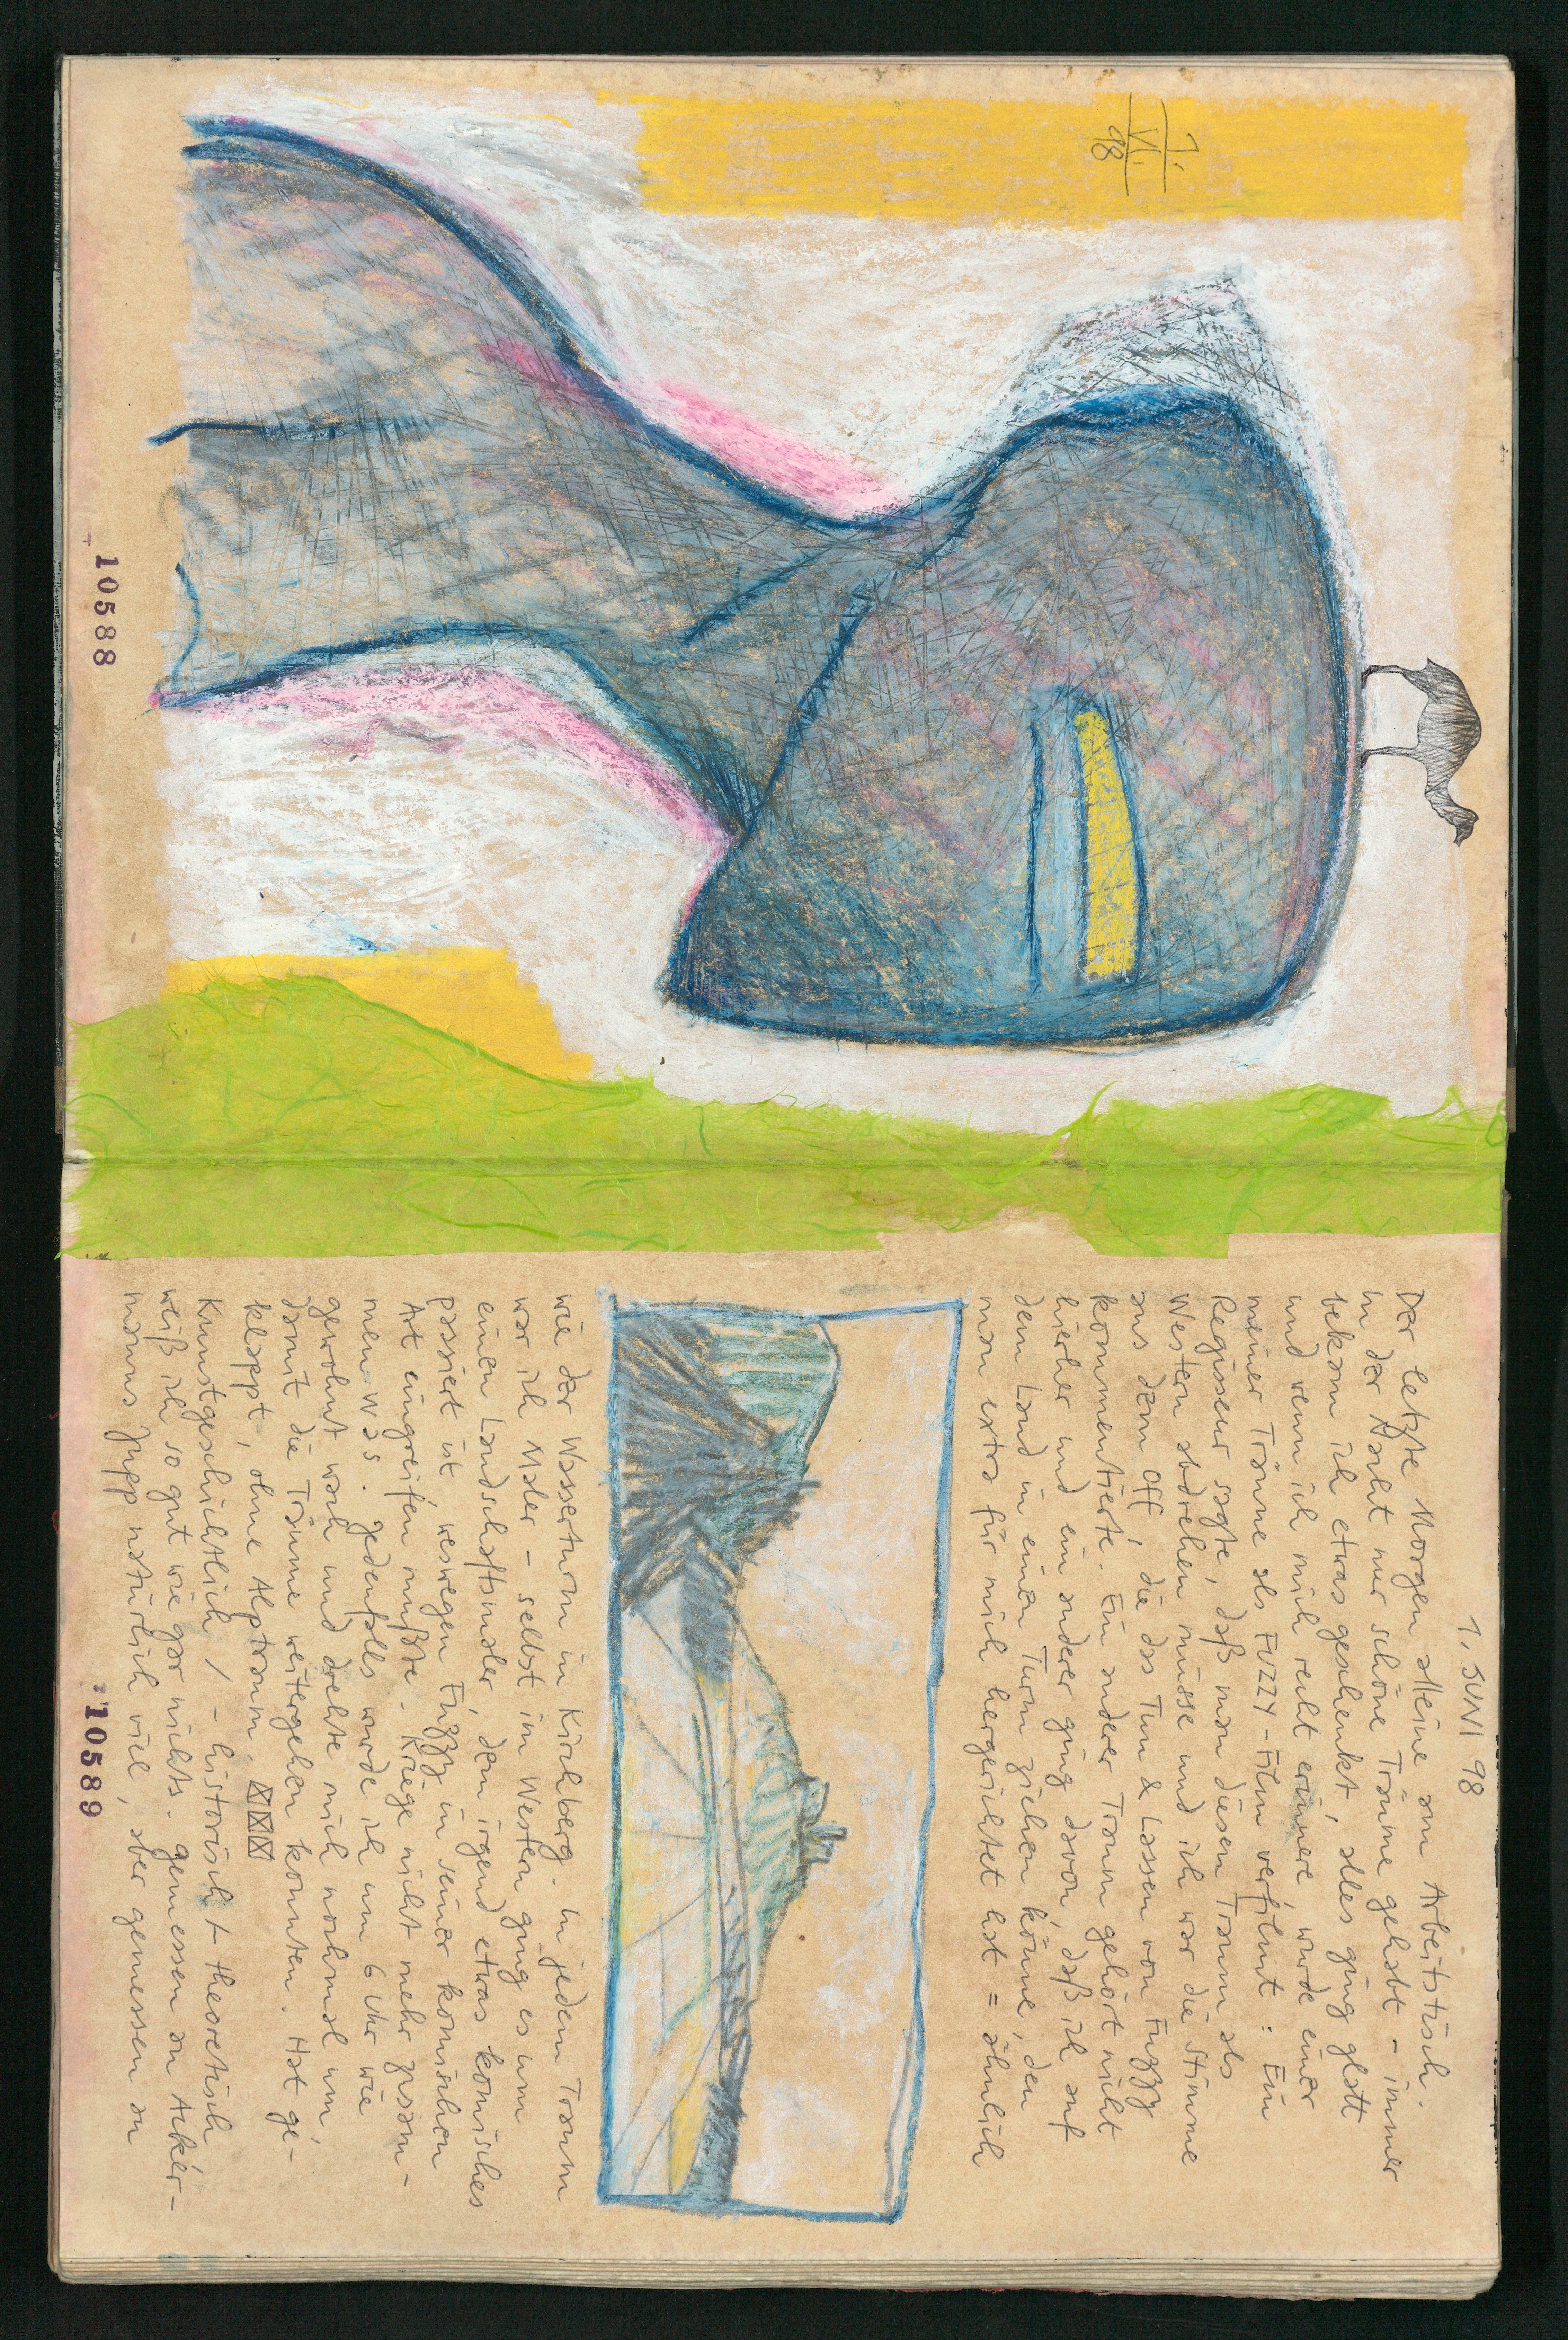 1.
VI.
98
10588
1. JUNI 98
Der letzte Morgen alleine am Arbeitstisch.
In der Nacht nur schöne Träume gehabt – immer
bekam ich etwas geschenkt, alles ging glatt
und wenn ich mich recht erinnere, wurde einer
meiner Träume als FUZZY-Film verfilmt: Ein
Regisseur sagte, daß man diesen Traum als
Western abdrehen müsse und ich war die Stimme
aus dem Off, die das Tun & Lassen von Fuzzy
kommentierte. Ein anderer Traum gehört nicht
hierher und ein anderer ging davon, daß ich auf
dem Land in einen Turm ziehen könne, den
man extra für mich hergerichtet hat = ähnlich
wie der Wasserturm in Kirchberg. In jedem Traum
war ich Maler – selbst im Western ging es um
einen Landschaftsmaler, dem irgend etwas komisches
passiert ist, weswegen Fuzzy in seiner komischen
Art eingreifen mußte. Kriege nicht mehr zusam-
men was. Jedenfalls wurde ich um 6 Uhr wie
gewohnt wach und drehte mich nochmal um,
damit die Träume weitergehen konnten. Hat ge-
klappt, ohne Alptraum.
Kunstgeschichtlich / – historisch + theoretisch
weiß ich so gut wie gar nichts. gemessen an Acker-
manns Jupp natürlich viel, aber gemessen an
10589